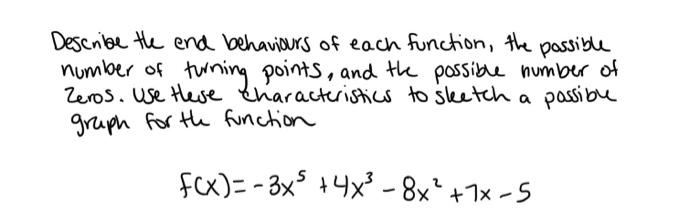 Describe the end behaviours of each function, the possible
number of turning points, and the possible number of
Zeros. Use these characteristics to sketch a possible
graph for the function
f(x) = -3x⁵ + 4x³ - 8x² + 7x - 5